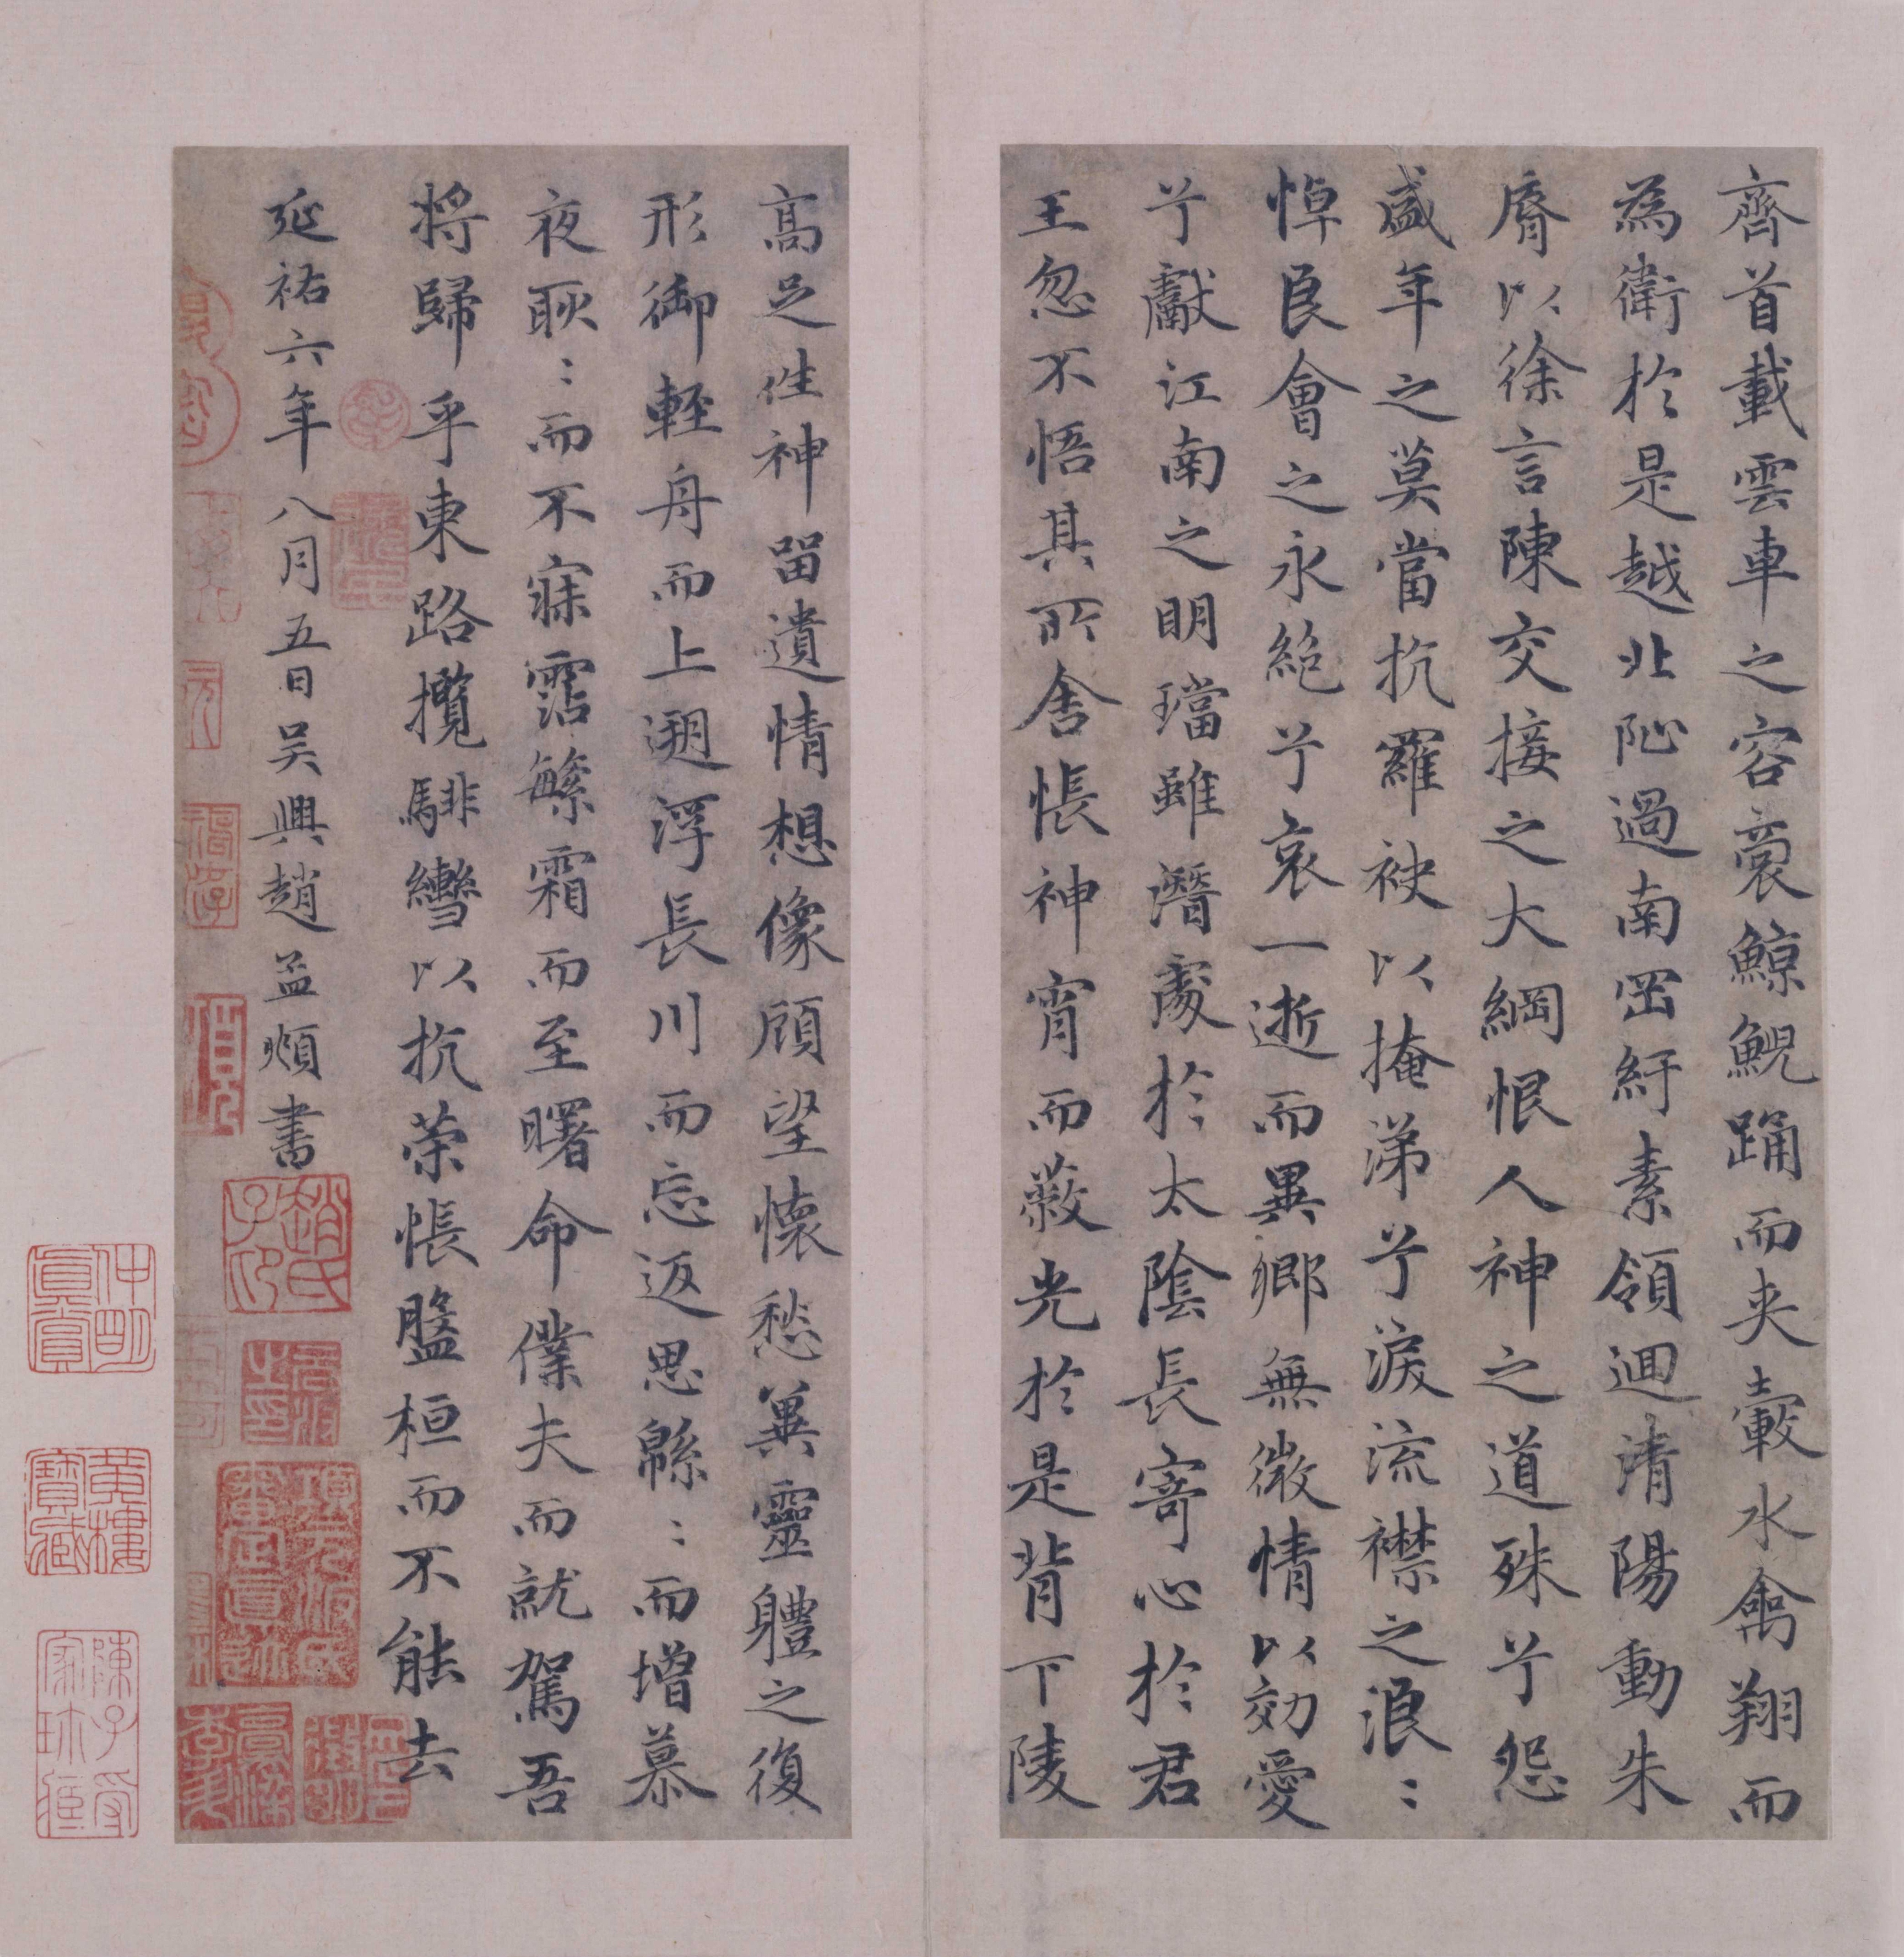 齊首載雲車之容裔鯨鯢踊而夾轂水禽翔而
為衛於是越北沚過南岡紆素領迴清陽動朱
脣以徐言陳交接之大綱恨人神之道殊兮怨
盛年之莫當抗羅袂以掩涕兮淚流襟之浪〻
悼良會之永絕兮哀一逝而異鄉無微情以効愛
兮獻江南之明璫雖潛處於太陰長寄心於君
王忽不悟其所舍悵神宵而蔽光於是背下陵
高足往神留遺情想像顧望懷愁冀靈體之復
形御輕舟而上遡浮長川而忘返思緜〻而增慕
夜耿〻而不寐霑繁霜而至曙命僕夫而就駕吾
將歸乎東路攬騑轡以抗策悵盤桓而不能去
延祐六年八月五日吳興趙孟頫書
趙氏子印
項元汴氏審定真跡
黃樓寶藏
陳子受家珍藏